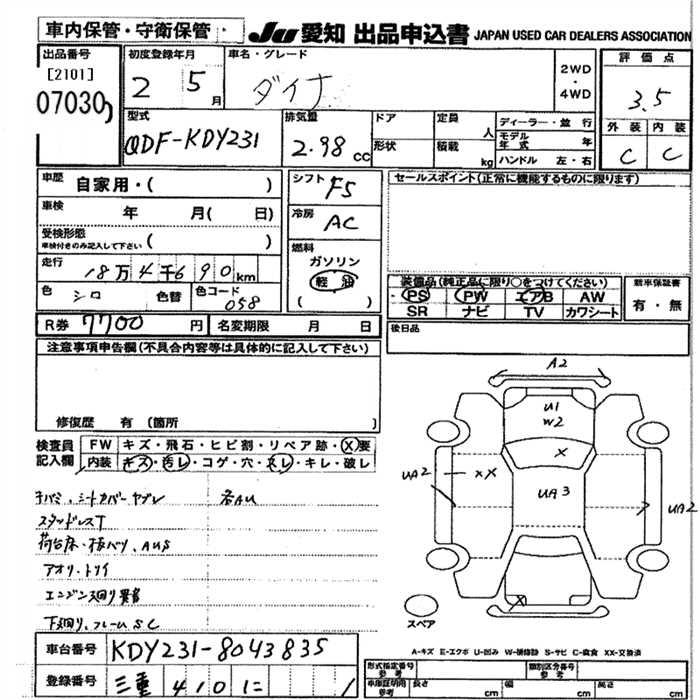 車内保管・守衛保管
JU 愛知 出品申込書 JAPAN USED CAR DEALERS ASSOCIATION
出品番号
[2101]
07030
初度登録年月
2 5月
車名・グレード
ダイナ
2WD
・
4WD
評価点
3.5
外装 内装
C C
型式
QDF-KDY231
排気量
2.98cc
ドア
形状
定員 人
積載 kg
ディーラー・並行
モデル年式 年
ハンドル 左・右
車歴 自家用・( )
車検 年 月( 日)
受検形態
車検付きのみ記入して下さい ( )
走行 18万4千690km
色 シロ 色替
色コード 058
シフト F5
冷房 AC
燃料
ガソリン
軽油
セールスポイント(正常に機能するものに限ります)
装備品(純正品に限り○をつけてください)
PS PW エアB AW
SR ナビ TV カワシート
新車保証書
有・無
後日品
R券 7700円 名変期限 月 日
注意事項申告欄(不具合内容等は具体的に記入して下さい)
修復歴 有 (箇所 )
検査員記入欄
FW キズ・飛石・ヒビ割・リペア跡・X要
内装 キズ・汚レ・コゲ・穴・スレ・キレ・破レ
シートカバーヤブレ
各AU
スタッドレスT
アオリ・トリイ
エンジン廻り異音
下廻り、フレームSC
A2
U1
W2
X
UA2
XX
UA3
UA2
X
スペア
A-キズ E-エクボ U-凹み W-補修跡 S-サビ C-腐食 XX-交換済
車台番号 KDY231-8043835
登録番号 三重 4101
形式指定番号 参考
類別区分番号 参考
車庫証明用 参考
長さ cm
幅 cm
高さ cm